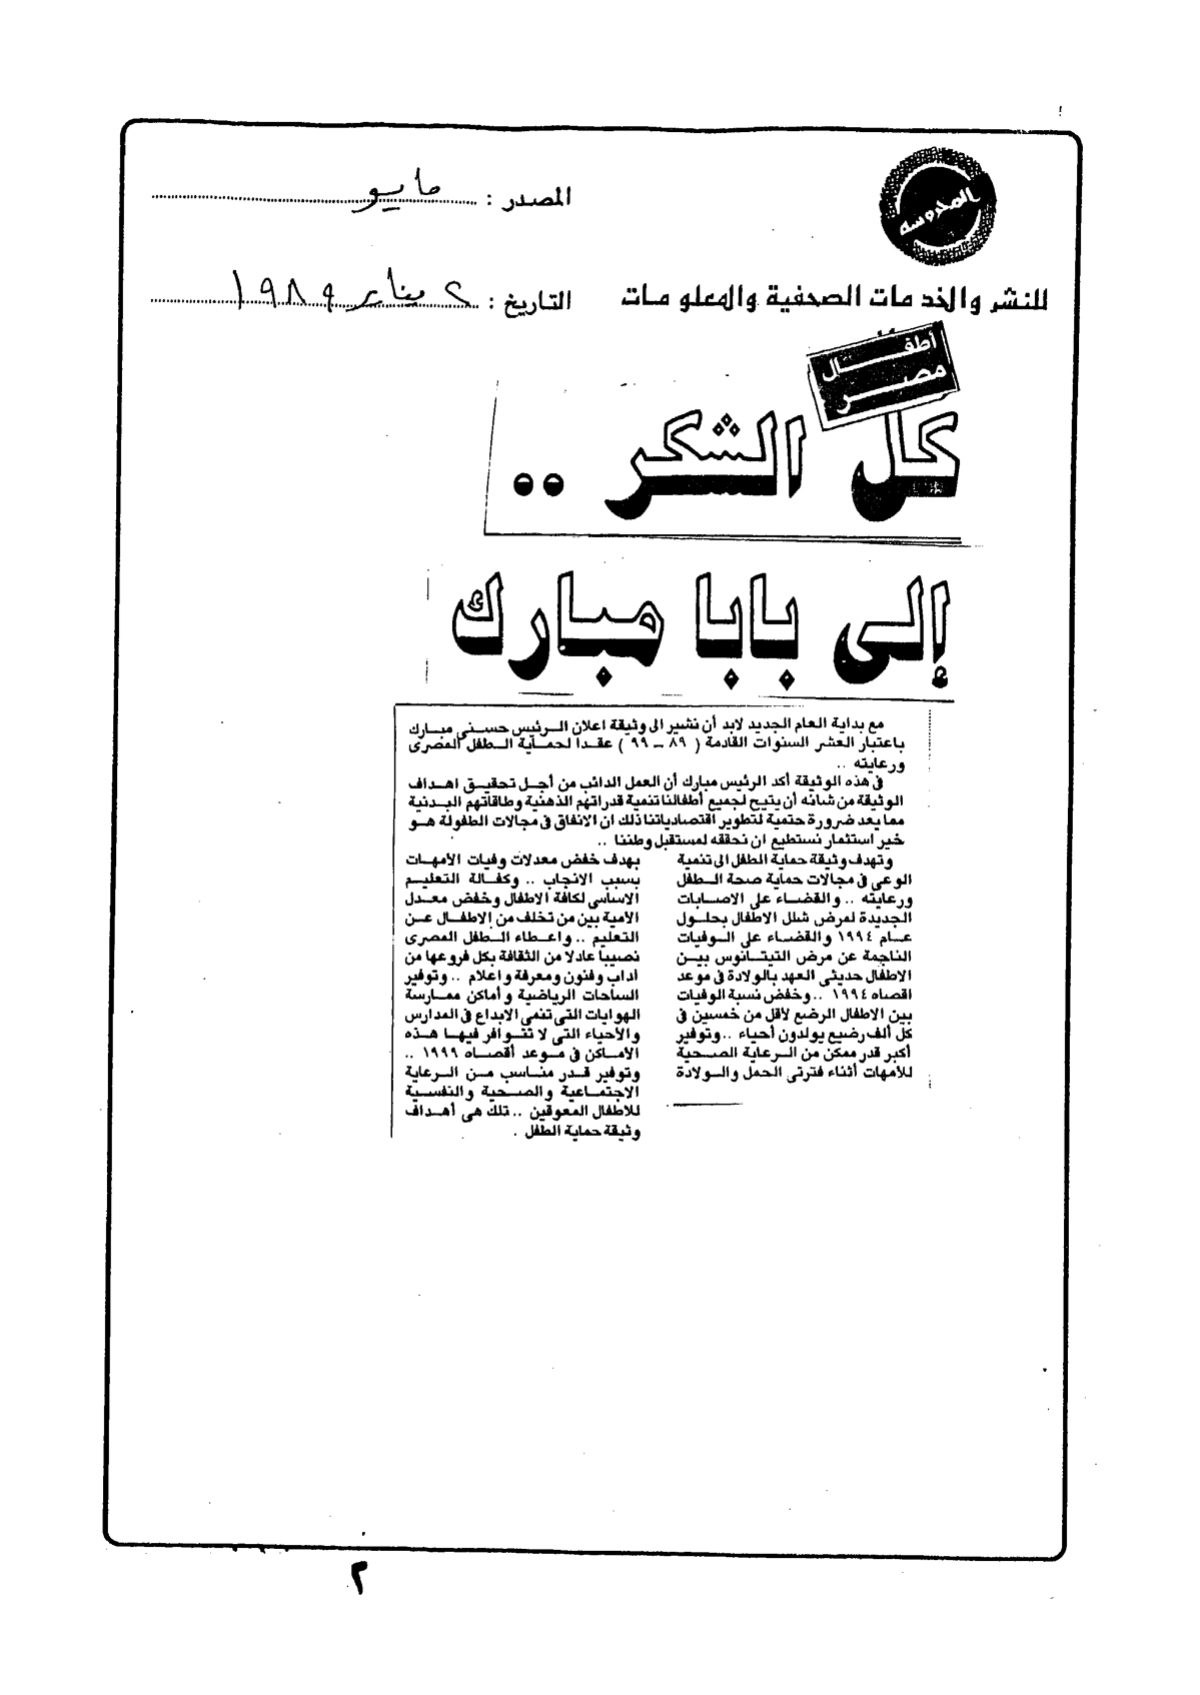 المحروسة
المصدر : مايو
للنشر والخدمات الصحفية والمعلومات
التاريخ : ٢ يناير ١٩٨٩
أطفال
مصر
كل الشكر ..
إلى بابا مبارك
مع بداية العام الجديد لابد أن نشير الى وثيقة اعلان الرئيس حسنى مبارك
باعتبار العشر السنوات القادمة ( ٨٩ - ٩٩ ) عقدا لحماية الطفل المصرى
ورعايته ..
فى هذه الوثيقة أكد الرئيس مبارك أن العمل الدائب من أجل تحقيق اهداف
الوثيقة من شانه أن يتيح لجميع أطفالنا تنمية قدراتهم الذهنية وطاقاتهم البدنية
مما يعد ضرورة حتمية لتطوير اقتصادياتنا ذلك ان الانفاق فى مجالات الطفولة هو
خير استثمار نستطيع ان نحققه لمستقبل وطننا ..
وتهدف وثيقة حماية الطفل الى تنمية
الوعى فى مجالات حماية صحة الطفل
ورعايته .. والقضاء على الاصابات
الجديدة لمرض شلل الاطفال بحلول
عام ١٩٩٤ والقضاء على الوفيات
الناجمة عن مرض التيتانوس بين
الاطفال حديثى العهد بالولادة فى موعد
اقصاه ١٩٩٤ .. وخفض نسبة الوفيات
بين الاطفال الرضع لأقل من خمسين فى
كل ألف رضيع يولدون أحياء .. وتوفير
أكبر قدر ممكن من الرعاية الصحية
للأمهات أثناء فترتى الحمل والولادة
بهدف خفض معدلات وفيات الأمهات
بسبب الانجاب .. وكفالة التعليم
الاساسى لكافة الاطفال وخفض معدل
الأمية بين من تخلف من الاطفال عن
التعليم .. واعطاء الطفل المصرى
نصيبا عادلا من الثقافة بكل فروعها من
اداب وفنون ومعرفة واعلام .. وتوفير
الساحات الرياضية وأماكن ممارسة
الهوايات التى تنمى الابداع فى المدارس
والأحياء التى لا تتوافر فيها هذه
الاماكن فى موعد أقصاه ١٩٩٩ ..
وتوفير قدر مناسب من الرعاية
الاجتماعية والصحية والنفسية
للاطفال المعوقين .. تلك هى أهداف
وثيقة حماية الطفل .
٢